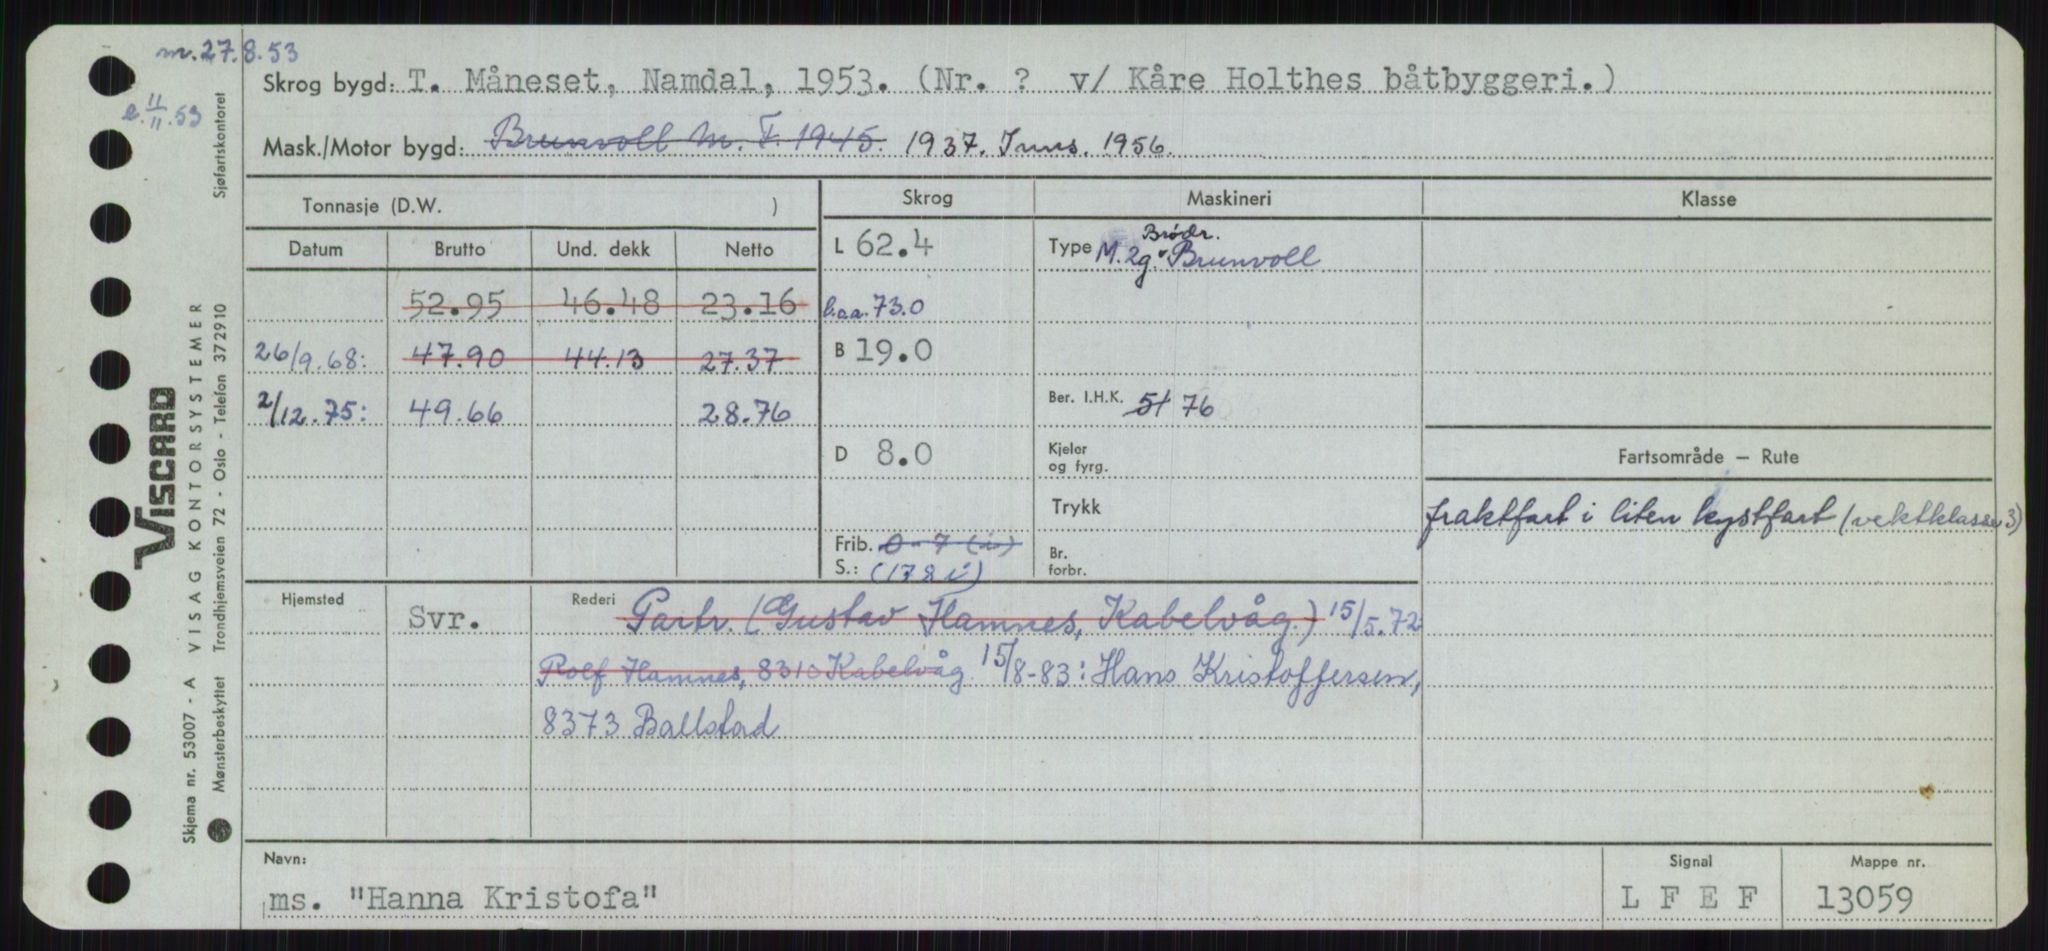 m. 27.8.53
e. 11/11.53
Skrog bygd: T. Måneset, Namdal, 1953. (Nr. ? v/ Kåre Holthes båtbyggeri.)
Mask./Motor bygd: Brunvoll M. F. 1945. 1937. Inns. 1956.
Tonnasje (D.W. )
Skrog
Maskineri
Klasse
Datum Brutto Und. dekk Netto
L 62.4
Type M. 2g. Brødr. "Brunvoll
52.95 46.48 23.16
l.o.a. 73.0
26/9.68: 47.90 44.13 27.37
B 19.0
2/12.75: 49.66 28.76
Ber. I.H.K. 51 76
D 8.0
Kjeler og fyrg.
Fartsområde — Rute
Trykk
fraktfart i liten kystfart (vektklasse 3)
Frib. 0-7 (i)
S.: (178 i)
Br. forbr.
Hjemsted Svr.
Rederi Partr. (Gustav Hamnes, Kabelvåg.) 15/5.72
Rolf Hamnes, 8310 Kabelvåg 15/8-83: Hans Kristoffersen,
8373 Ballstad
Navn:
ms. "Hanna Kristofa"
Signal
L F E F
Mappe nr.
13059
Sjøfartskontoret
VISCARD
Skjema nr. 53007 - A VISAG KONTORSYSTEMER
Mønsterbeskyttet Trondhjemsveien 72 - Oslo - Telefon 372910